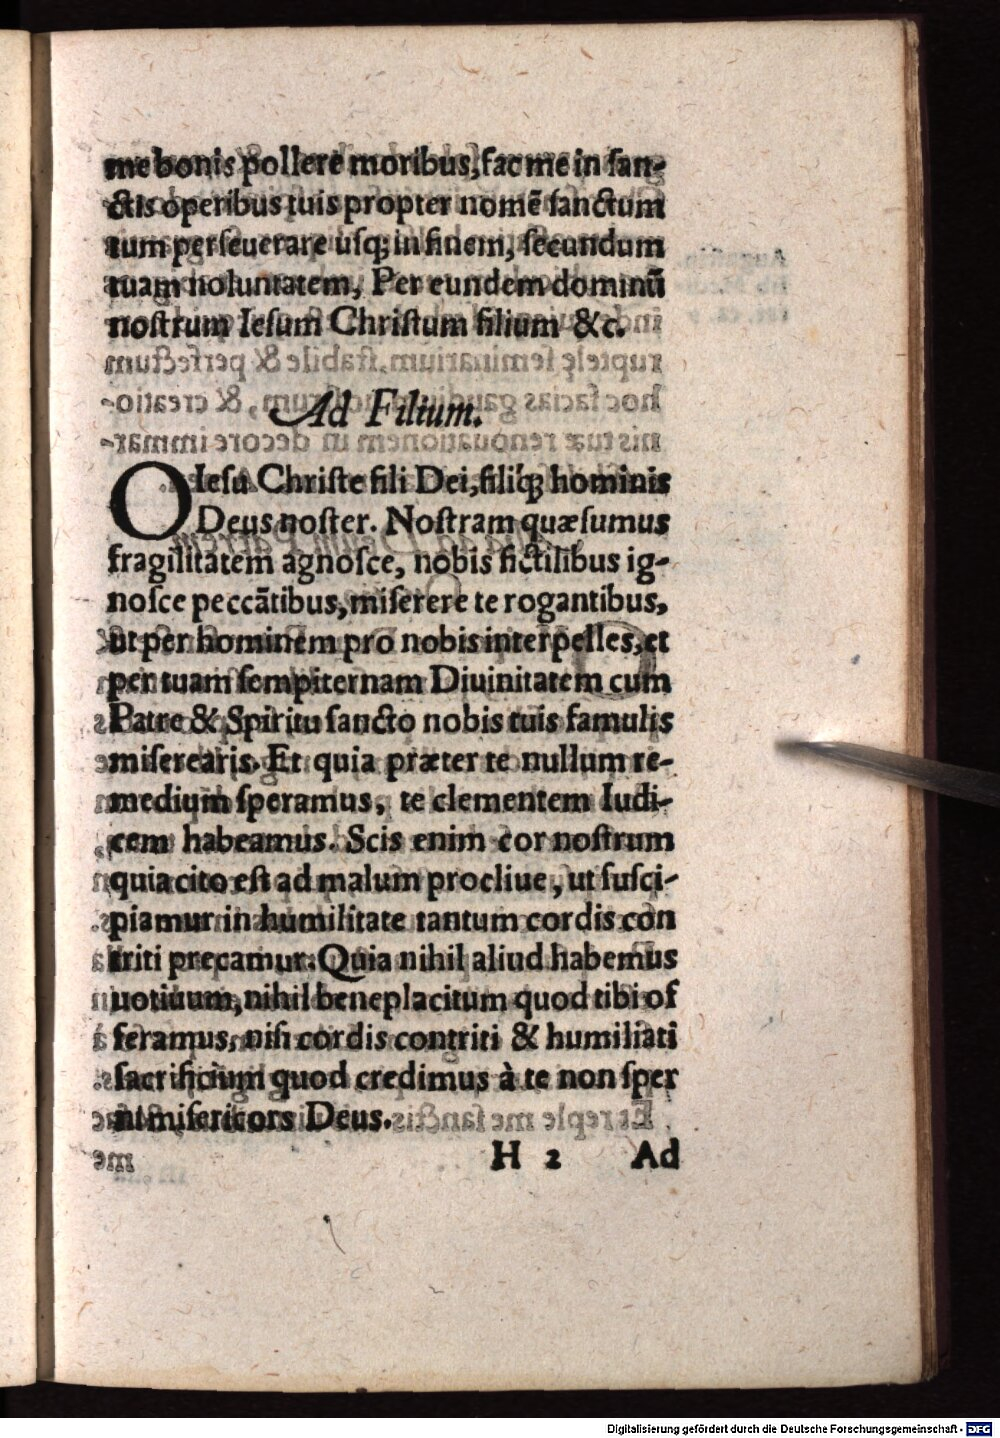 me bonis pollere moribus, fac me in ſan-
ctis operibus tuis propter nomē ſanctum
tum perſeuerare uſq; in finem, ſecundum
tuam uoluntatem, Per eundem dominū
noſtrum Ieſum Chriſtum filium &c.
Ad Filium.
O Ieſu Chriſte fili Dei, filiq́; hominis
Deus noſter. Noſtram quæſumus
fragilitatem agnoſce, nobis fictilibus ig-
noſce peccātibus, miſerere te rogantibus,
ut per hominem pro nobis interpelles, et
per tuam ſempiternam Diuinitatem cum
Patre & Spiritu ſancto nobis tuis famulis
miſerearis. Et quia præter te nullum re-
medium ſperamus, te clementem Iudi-
cem habeamus. Scis enim cor noſtrum
quia cito eſt ad malum procliue, ut ſuſci-
piamur in humilitate tantum cordis con
triti precamur. Quia nihil aliud habemus
uotiuum, nihil beneplacitum quod tibi of
feramus, niſi cordis contriti & humiliati
ſacrificium quod credimus à te non ſper
ni miſericors Deus.
H 2 Ad
Digitalisierung gefördert durch die Deutsche Forschungsgemeinschaft - DFG